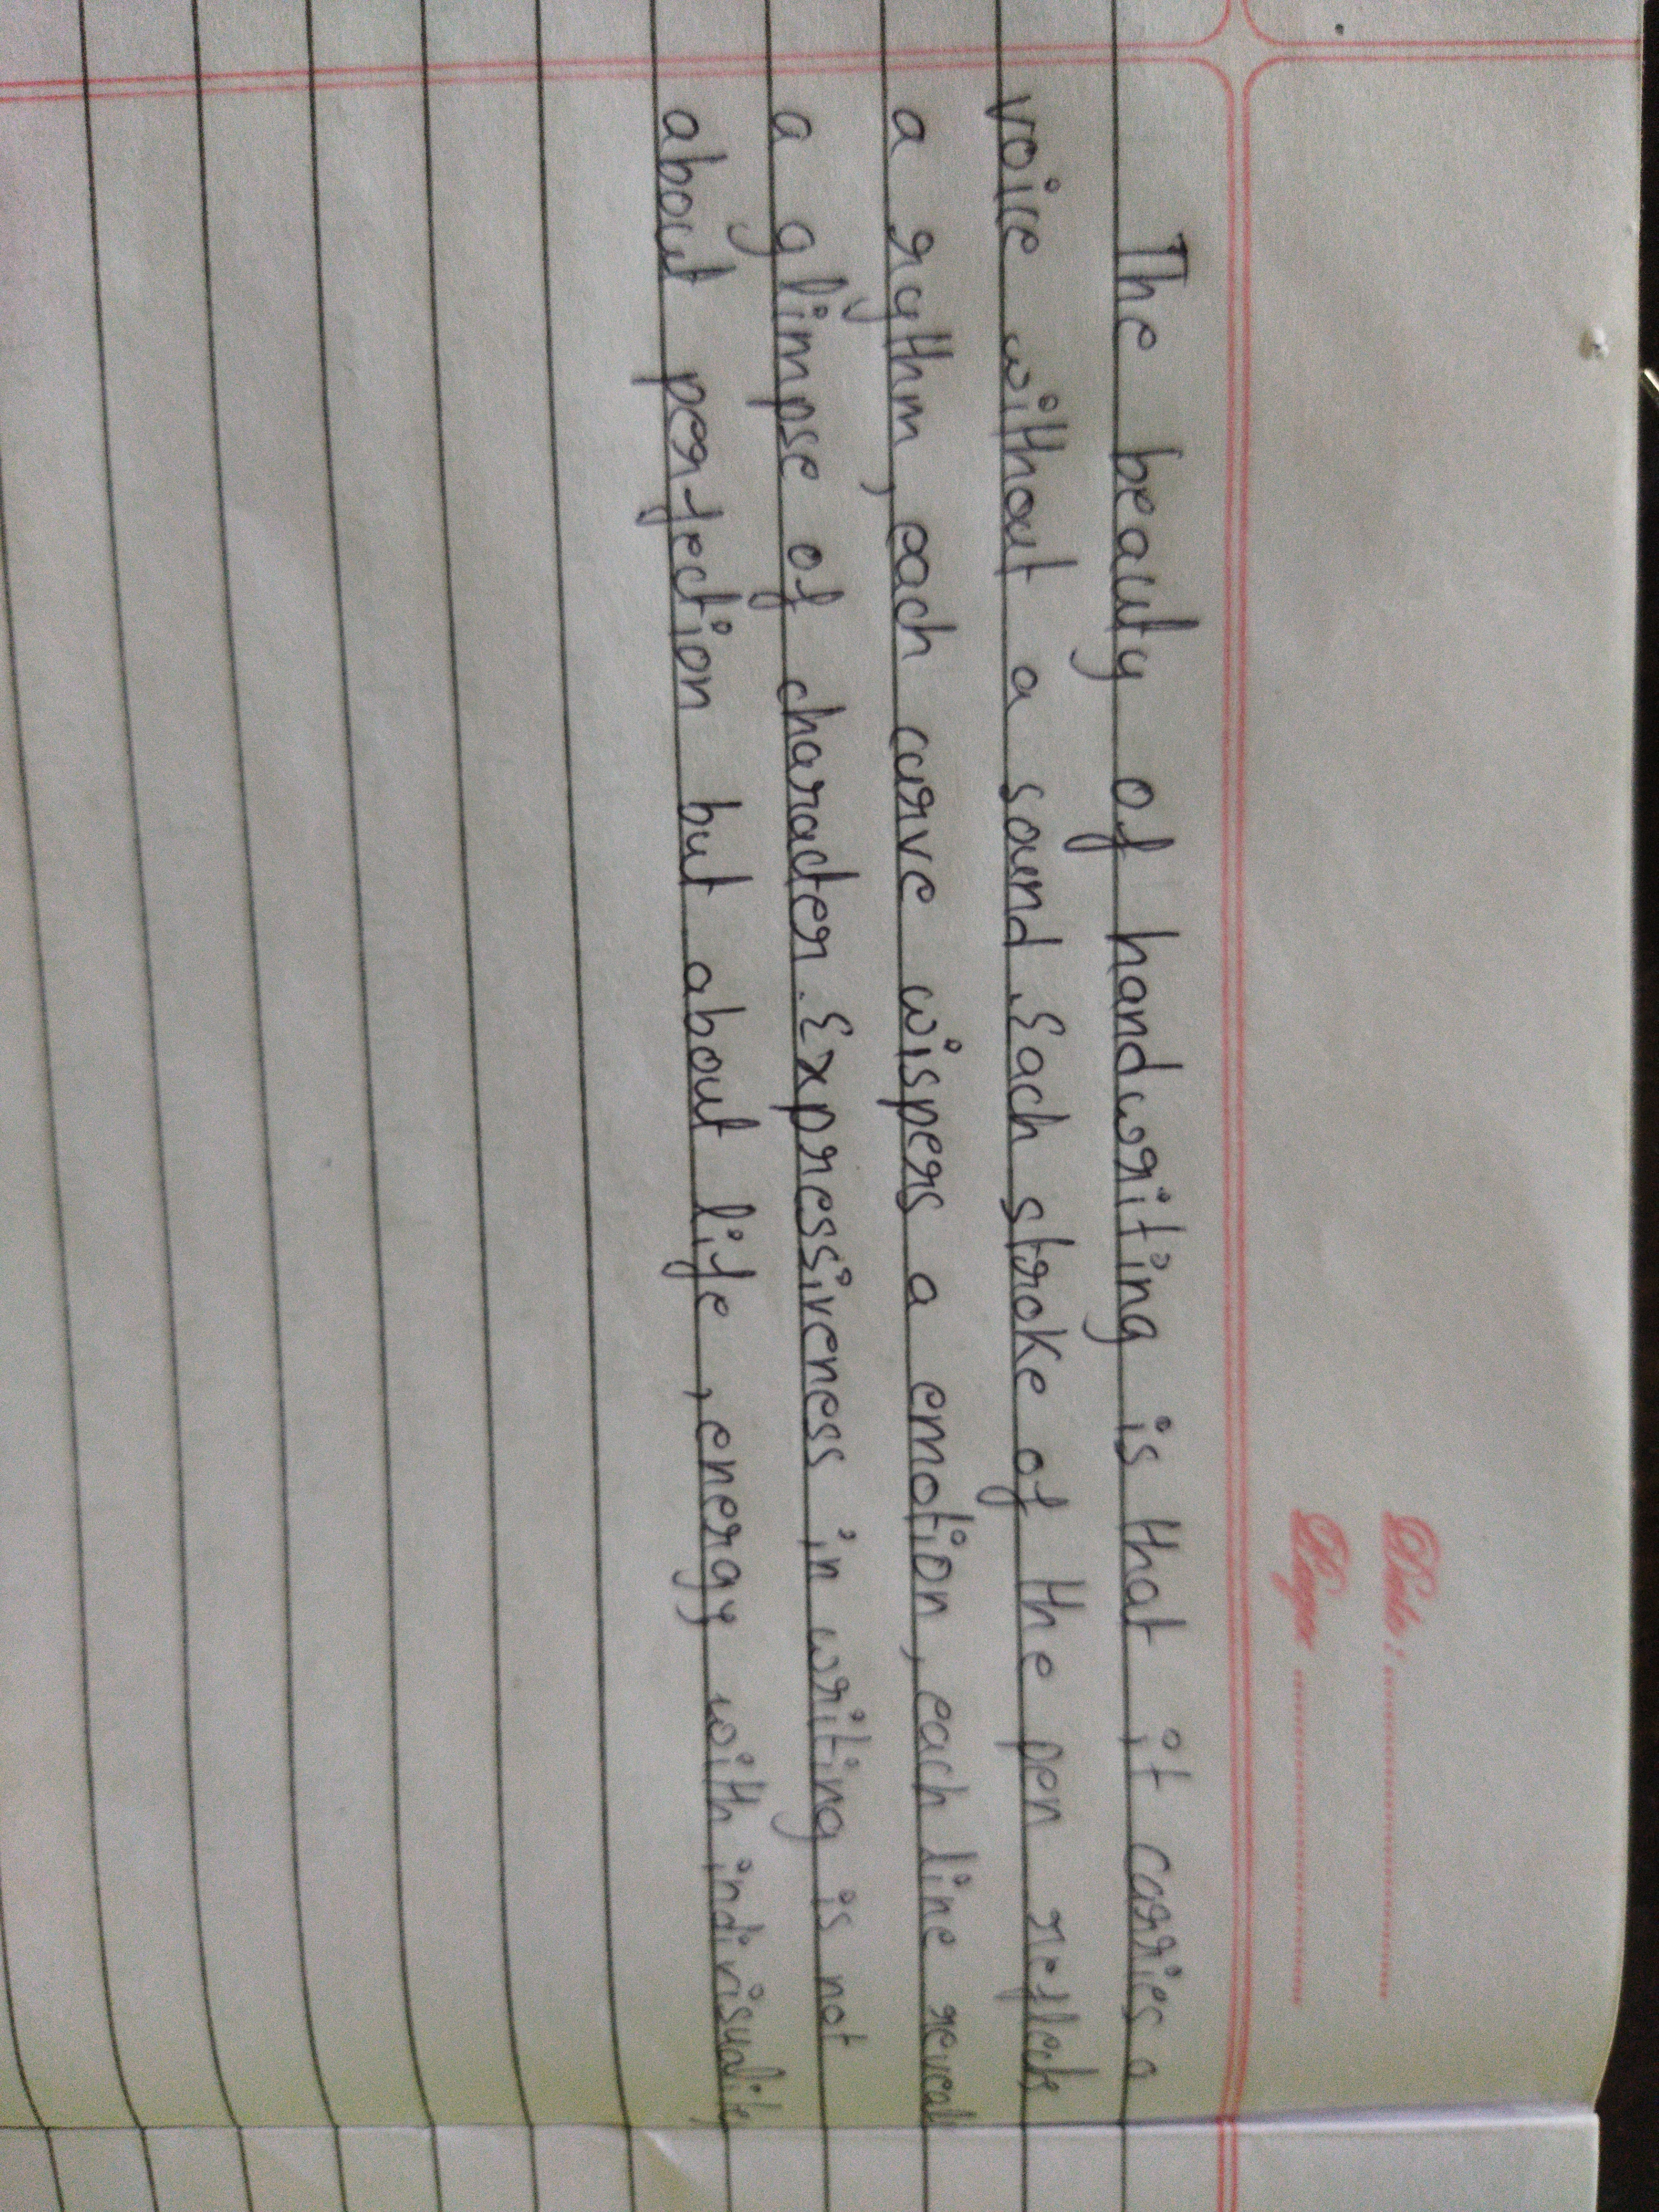 Date :
Page
The beauty of handwriting is that it carries a
voice without a sound. Each stroke of the pen reflects
a rythm, each curve wispers a emotion, each line reveal
a glimpse of character. Expressiveness in writing is not
about perfection but about life, energy with indivisuality